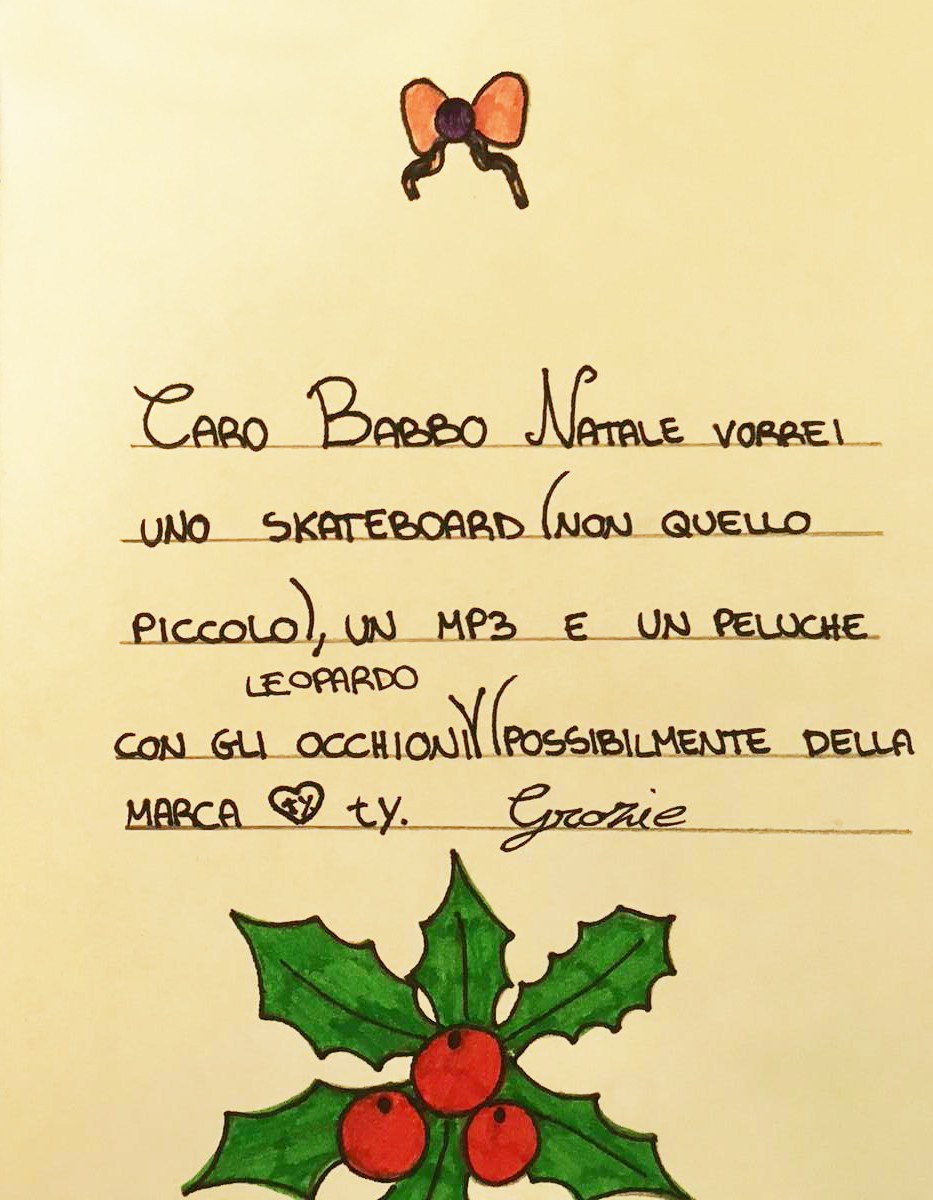 CARO BABBO NATALE VORREI
UNO SKATEBOARD (NON QUELLO
PICCOLO), UN MP3 E UN PELUCHE
LEOPARDO
CON GLI OCCHIONI (POSSIBILMENTE DELLA
MARCA ty ty. Grazie